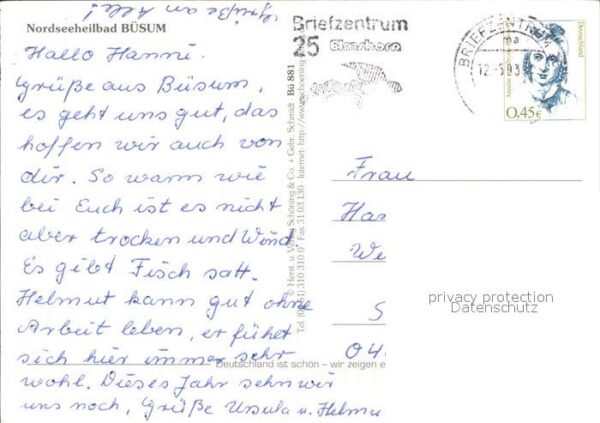 Grüße an Alle!
Nordseeheilbad BÜSUM
Hallo Hanni.
Grüße aus Büsum,
es geht uns gut, das
hoffen wir auch von
dir. So warm wie
bei Euch ist es nicht
aber trocken und Wind.
Es gibt Fisch satt.
Helmut kann gut ohne
Arbeit leben, er fühlt
sich hier immer sehr
wohl. Dieses Jahr sehn wir
uns noch, Grüße Ursula u. Helmu
Deutschland ist schön – wir zeigen e
© Horst. u. Verlag Schöning & Co. + Gebr. Schmidt
Bü 881
Tel. (0451) 310 310 0 Fax 31 03 130 Internet: http://www.schoening
Briefzentrum
25 Elmshorn
BRIEFZENTRUM
ma
Deutschland
0.45€
Frau
Han
We
S
04
privacy protection
Datenschutz